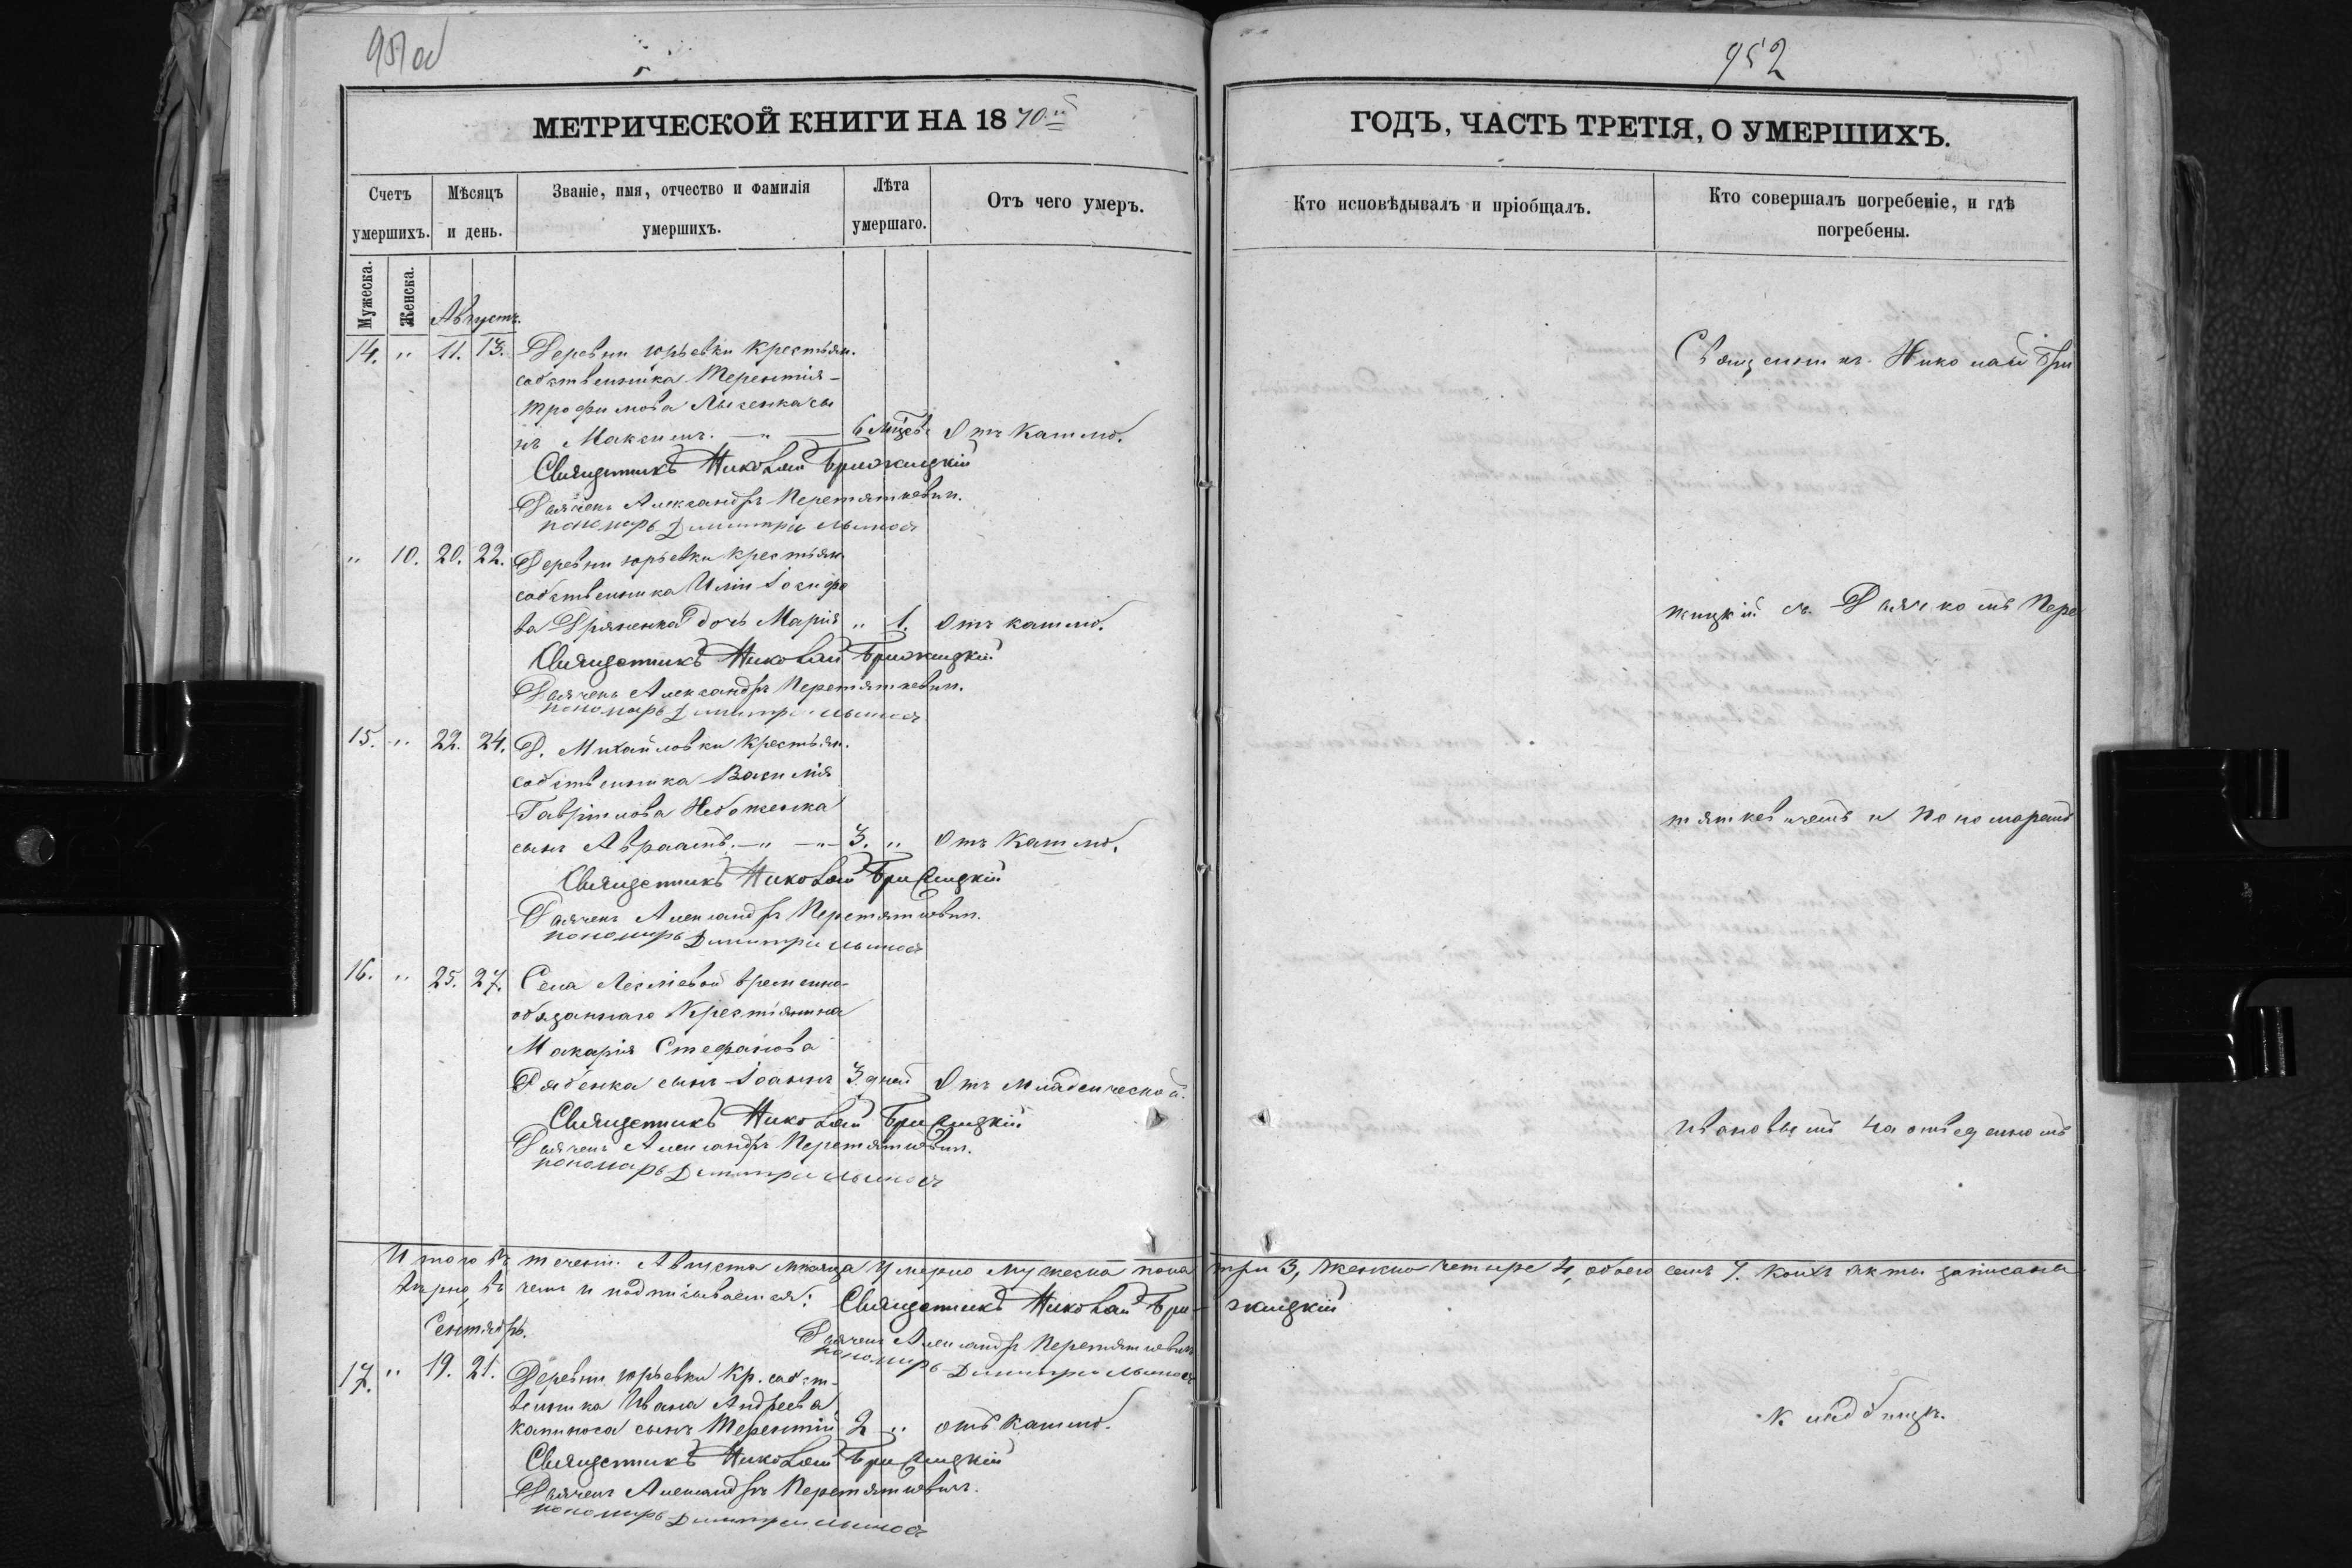 951 об
952
МЕТРИЧЕСКОЙ КНИГИ НА 1870й
ГОДЪ, ЧАСТЬ ТРЕТІЯ, О УМЕРШИХЪ.
Счетъ умершихъ.
Мѣсяцъ и день.
Званіе, имя, отчество и фамилія умершихъ.
Лѣта умершаго.
Отъ чего умеръ.
Кто исповѣдывалъ и пріобщалъ.
Кто совершалъ погребеніе, и гдѣ погребены.
Мужеска.
Женска.
Августъ.
14. " 11. 13. Деревни Юрьевки крестьян.
собственника Терентія
Трофимова Лысенка сы
нъ Максимъ. — " — 6 мѣсяц. Отъ кашлю.
Священникъ Николай Брижицкій
Дьячекъ Александръ Перетяткевич.
пономарь Димитрій
" 10. 20. 22. Деревни Юрьевки крестьян.
собственника Иліи Іосифо
ва Дряненка дочь Марія " 1. Отъ кашлю.
Священникъ Николай Брижицкій
Дьячекъ Александръ Перетяткевич.
пономарь Димитрій
15. " 22. 24. Д. Михайловки крестьян.
собственника Василія
Гавріилова Небоженка
сынъ Авраамъ. — " — " — 3. " Отъ кашлю.
Священникъ Николай Брижицкій
Дьячекъ Александръ Перетяткевич.
пономарь Димитрій
16. " 25. 27. Села Леоміевой временно-
обязаннаго Крестіянина
Макарія Стефанова
Рябенка сынъ Іоаннъ 3 дней Отъ младенческой.
Священникъ Николай Брижицкій
Дьячекъ Александръ Перетяткевич.
пономарь Димитрій
Итого въ теченіи Августа мѣсяца умерло мужеска пола три 3, женска четыре 4, обоего семь 7. Коихъ акты записаны
вѣрно, въ чемъ и подписываемся: Священникъ Николай Брижицкій
Дьячекъ Александръ Перетяткевич
пономарь Димитрій
Сентябрь.
17. " 19. 21. Деревни Юрьевки Кр. собст-
венника Ивана Андреева
Капиноса сынъ Терентій 2 " отъ кашлю.
Священникъ Николай Брижицкій
Дьячекъ Александръ Перетяткевич.
пономарь Димитрій
Священникъ Николай Бри
жицкій съ Дьячкомъ Пере
тяткевичемъ и Пономаремъ
Ивановымъ на отведенномъ
кладбищѣ.